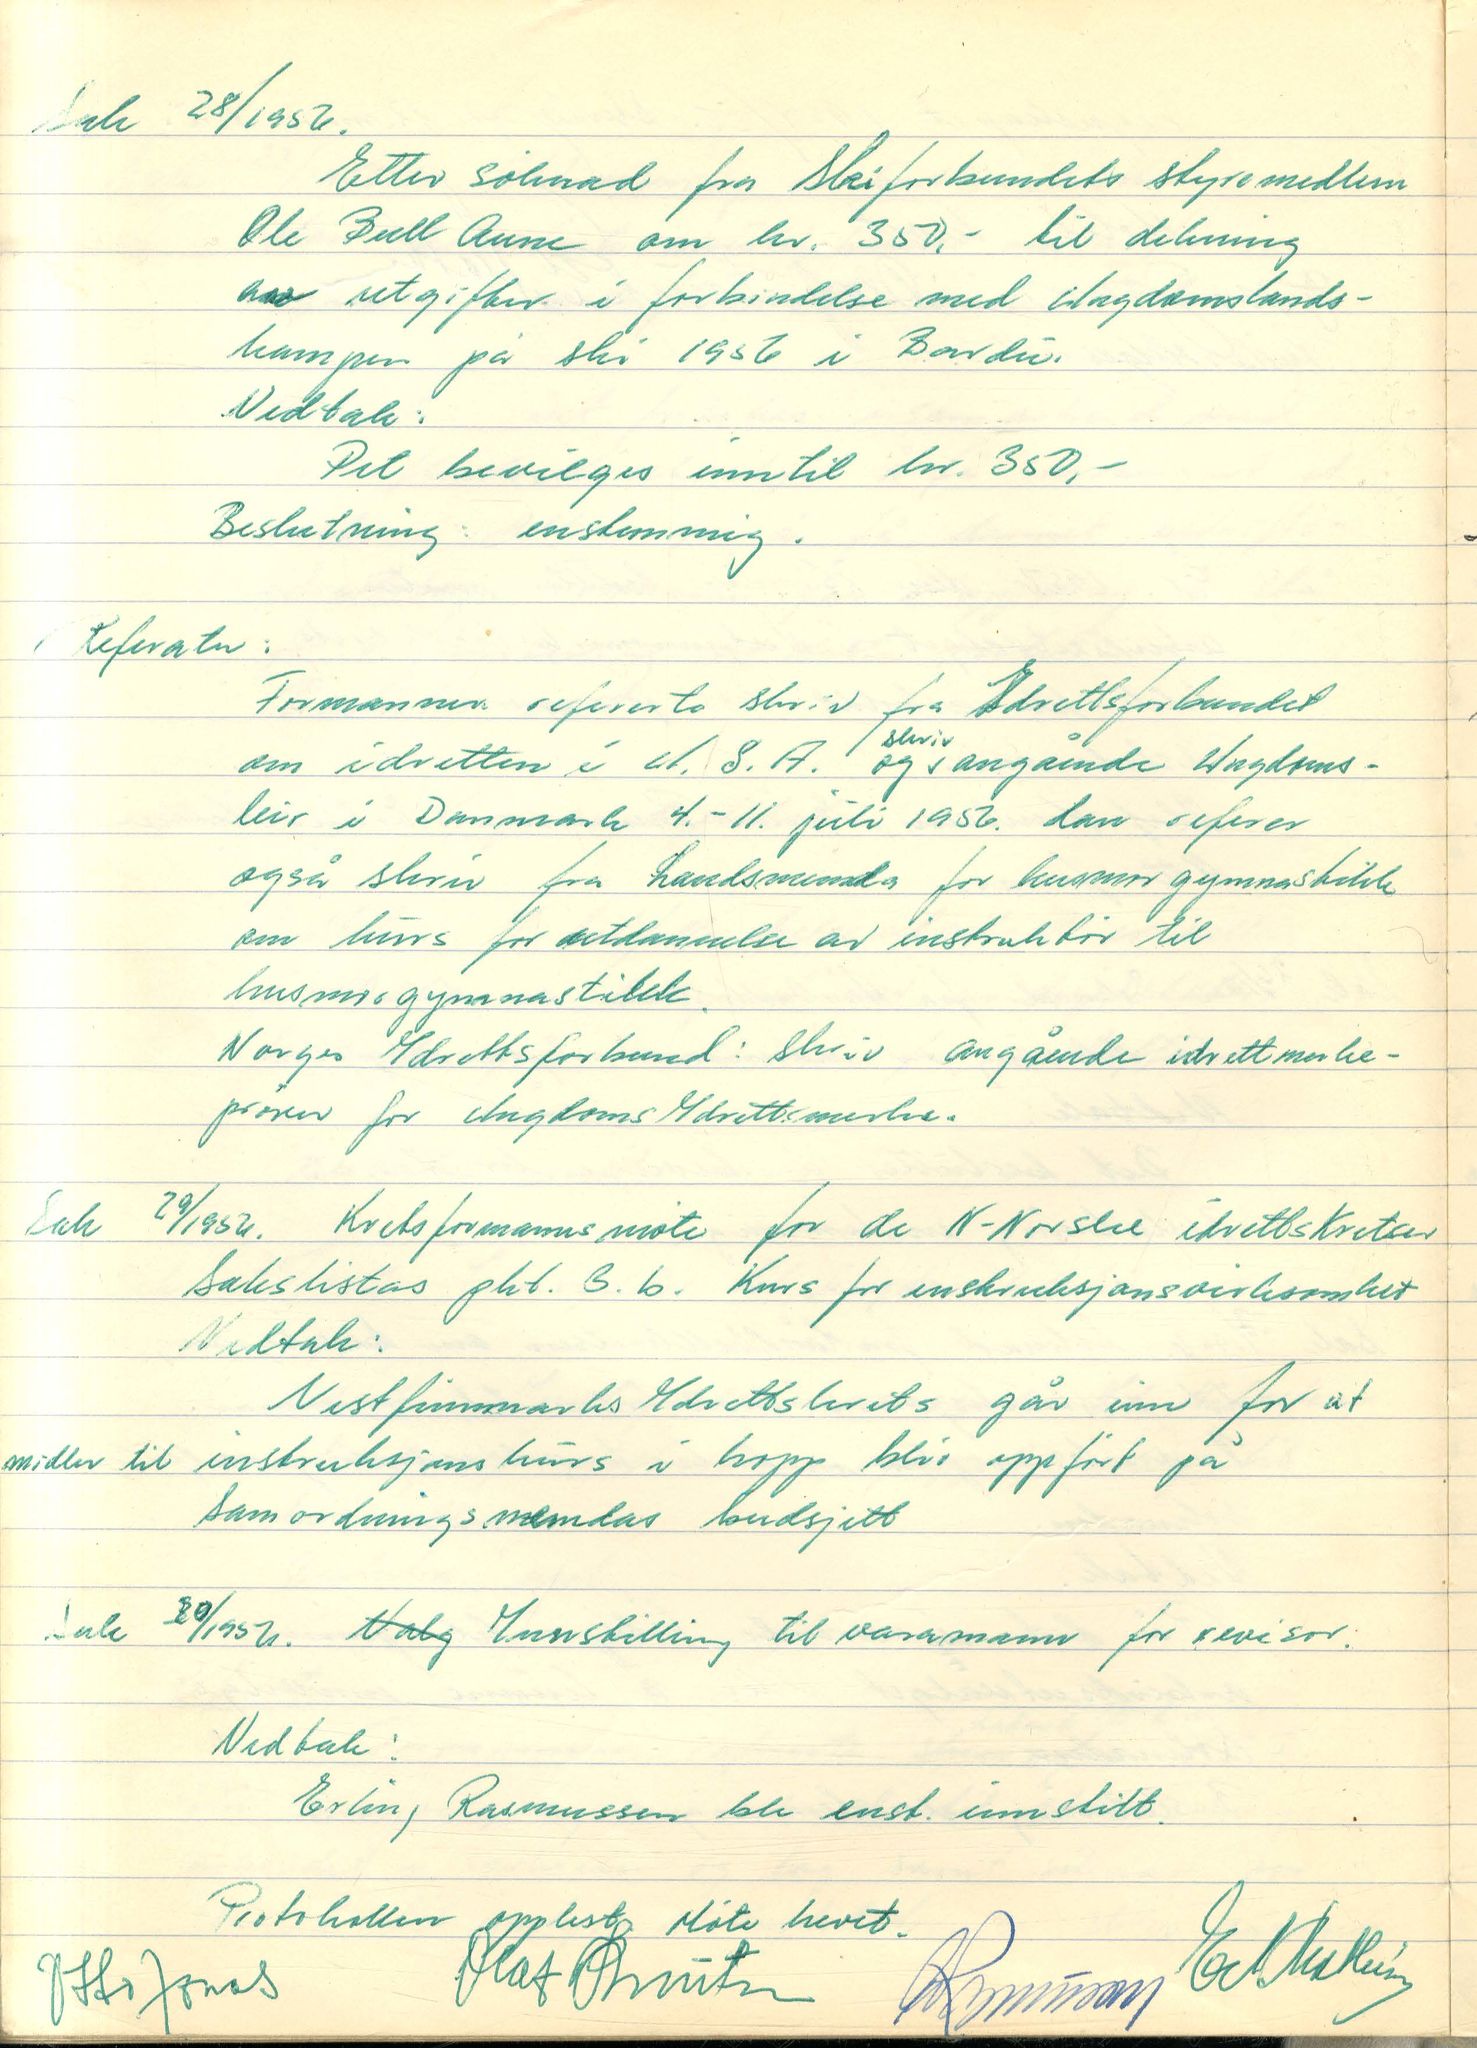 Sak 28/1956.
Etter søknad fra Skiforbundets styremedlem
Ole Bull Aune om kr. 350,- til dekning
av utgifter i forbindelse med Ungdomslands-
kampen på ski 1956 i Bardu.
Vedtak:
Det bevilges inntil kr. 350,-
Beslutning: enstemmig.
Referater:
Formannen referete skriv fra Idrettsforbundet
om idretten i U.S.A. og skriv angående Ungdoms-
leir i Danmark 4.-11. juli 1956. Han referer
også skriv fra Landsnemnda for husmorgymnastikk
om kurs for utdannelse av instruktør til
husmorgymnastikk.
Norges Idrettsforbund: skriv angående idrettmerke-
prøver for Ungdoms Idrettsmerke.
Sak 29/1956. Kretsformannsmøte for de N-Norske idrettskretser
Sakslistas pkt. 3.b. Kurs for instruksjonsvirksomhet
Vedtak:
Vestfinnmarks Idrettskrets går inn for at
midler til instruksjonskurs i hopp blir oppført på
Samordningsnemndas budsjett
Sak 30/1956. Valg Innstilling til varamann for revisor.
Vedtak:
Erling Rasmussen ble enst. innstilt.
Protokollen opplest Møte hevet.
Otto Jonas Olaf